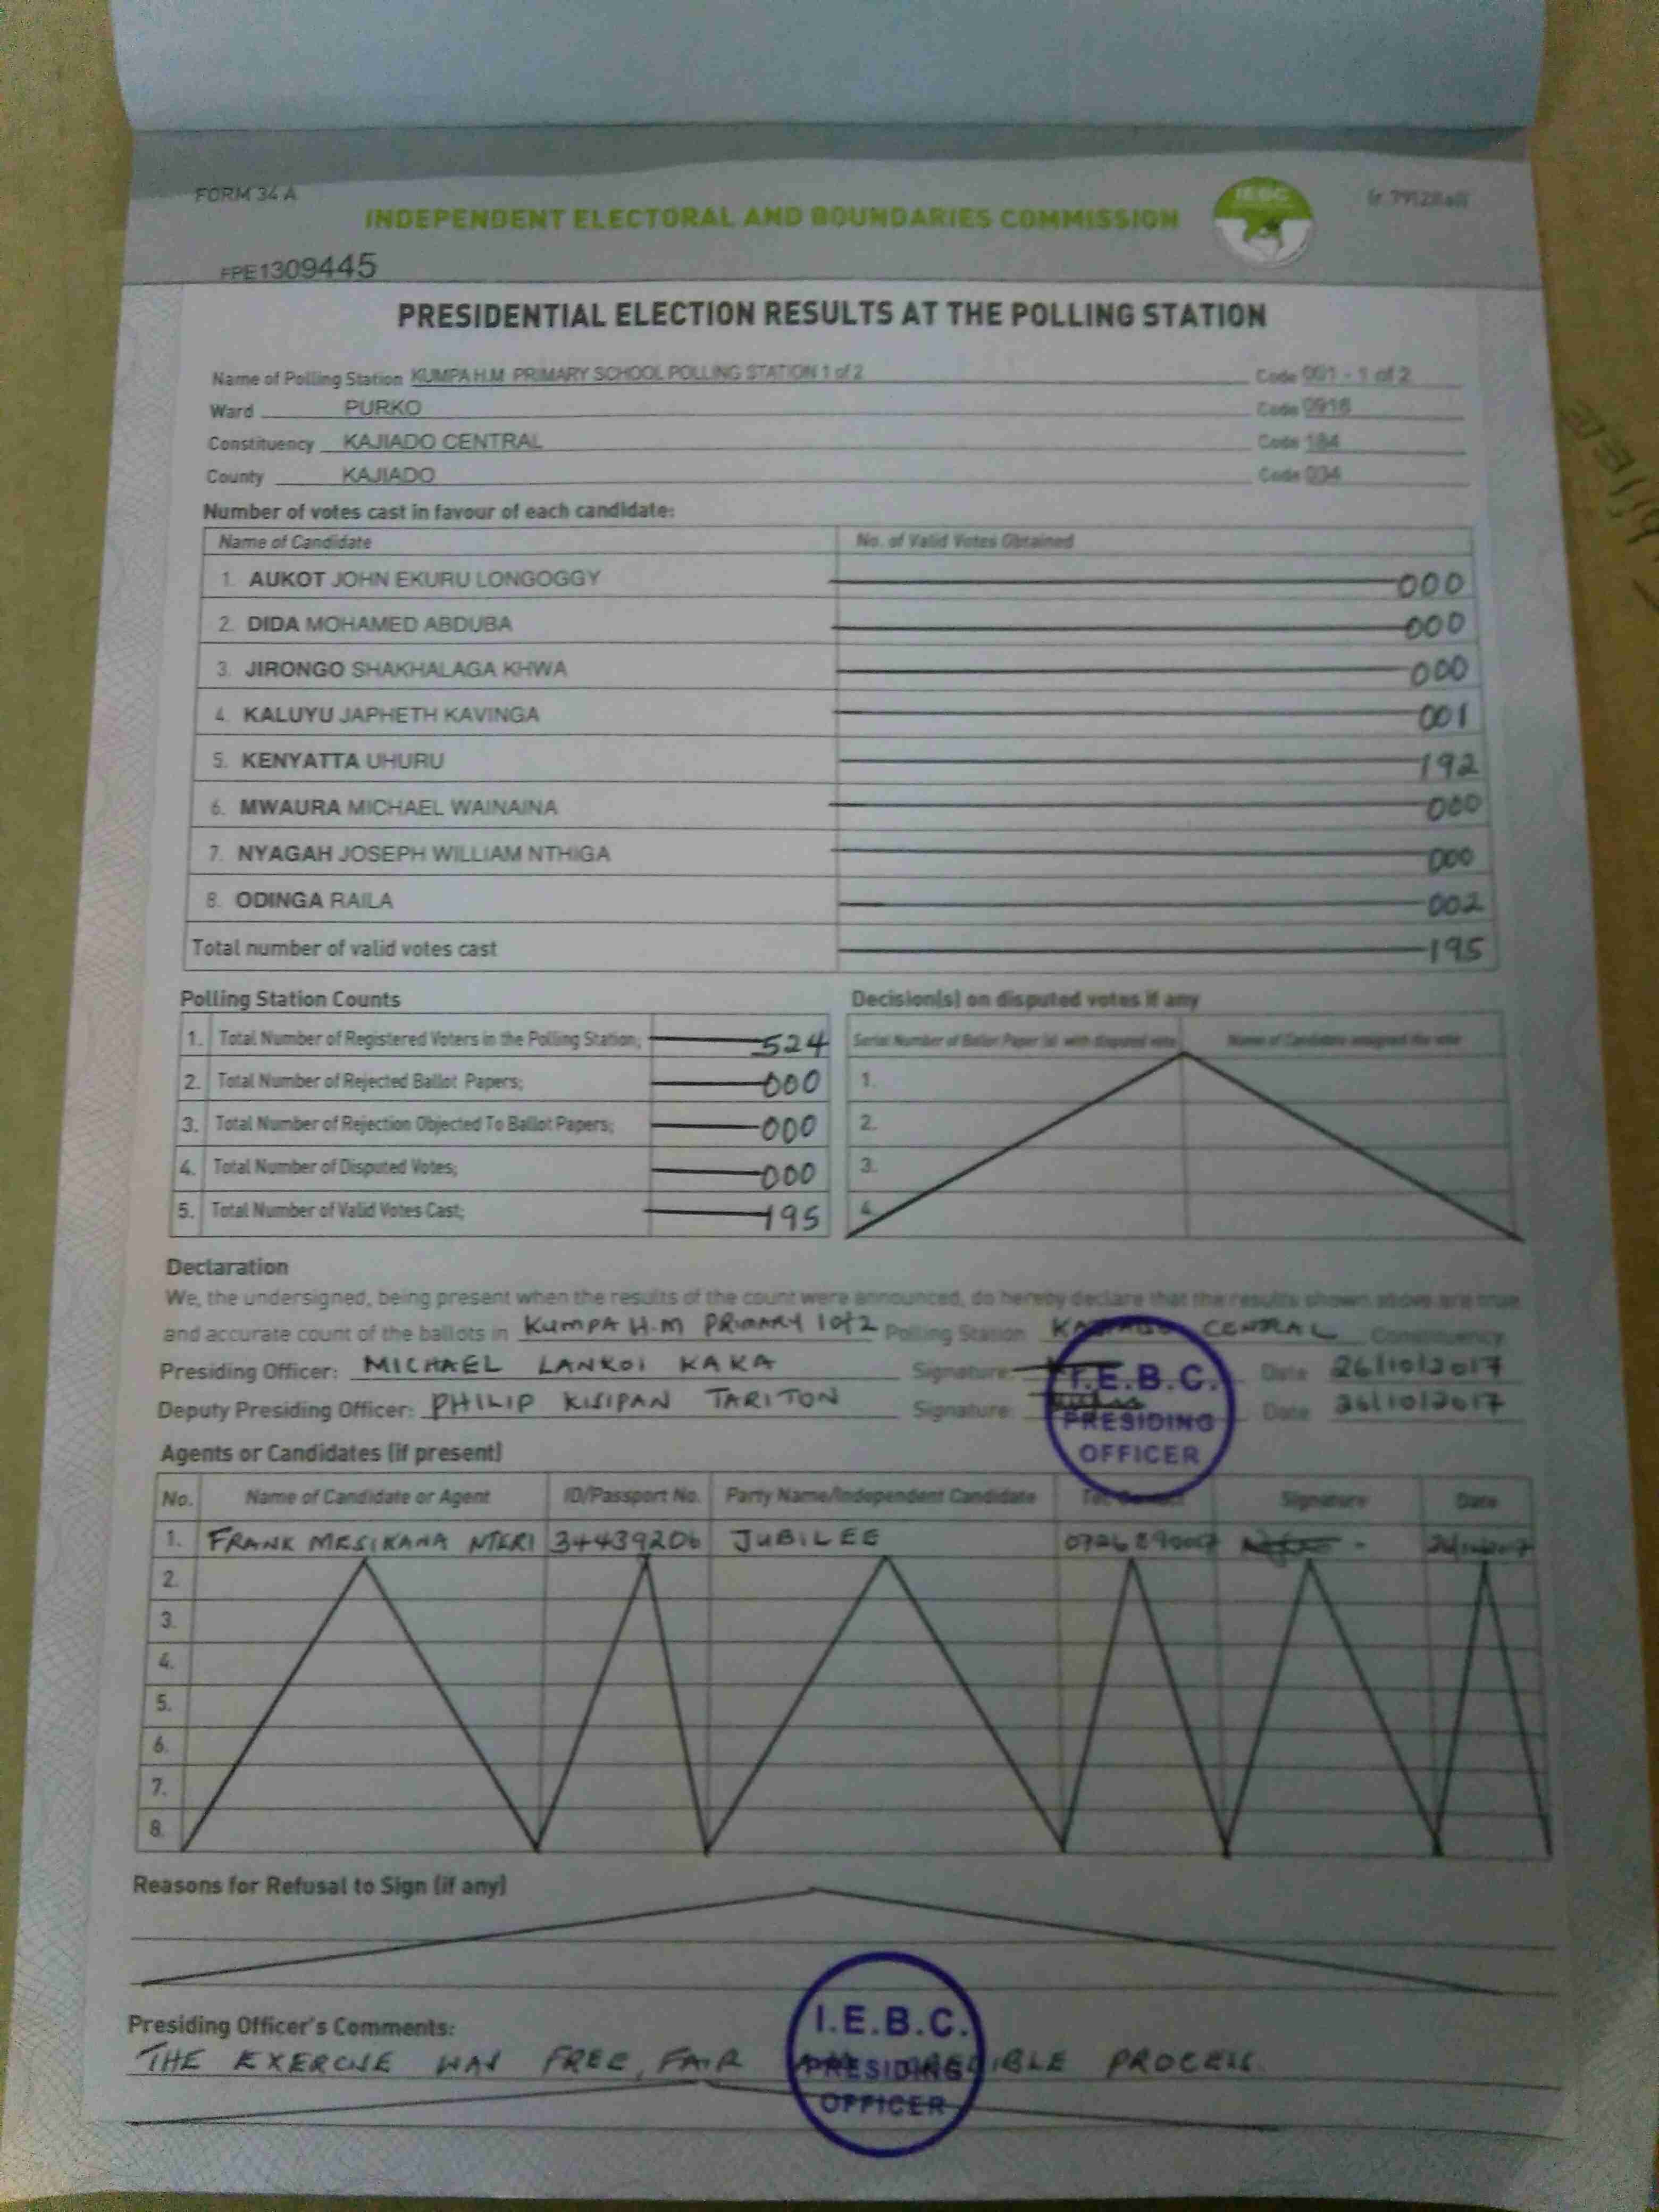 FORM 34 A
INDEPENDENT ELECTORAL AND BOUNDARIES COMMISSION
IEBC
FPE1309445
PRESIDENTIAL ELECTION RESULTS AT THE POLLING STATION
Name of Polling Station KUMPA H.M PRIMARY SCHOOL POLLING STATION 1 of 2 Code 001 - 1 of 2
Ward PURKO Code 0916
Constituency KAJIADO CENTRAL Code 184
County KAJIADO Code 034
Number of votes cast in favour of each candidate:
Name of Candidate No. of Valid Votes Obtained
1. AUKOT JOHN EKURU LONGOGGY 000
2. DIDA MOHAMED ABDUBA 000
3. JIRONGO SHAKHALAGA KHWA 000
4. KALUYU JAPHETH KAVINGA 001
5. KENYATTA UHURU 192
6. MWAURA MICHAEL WAINAINA 000
7. NYAGAH JOSEPH WILLIAM NTHIGA 000
8. ODINGA RAILA 002
Total number of valid votes cast 195
Polling Station Counts
1. Total Number of Registered Voters in the Polling Station; 524
2. Total Number of Rejected Ballot Papers; 000
3. Total Number of Rejection Objected To Ballot Papers; 000
4. Total Number of Disputed Votes; 000
5. Total Number of Valid Votes Cast; 195
Decision(s) on disputed votes if any
Serial Number of Ballot Paper (s) with disputed vote Name of Candidate assigned the vote
1.
2.
3.
4.
Declaration
We, the undersigned, being present when the results of the count were announced, do hereby declare that the results shown above are true
and accurate count of the ballots in KUMPA H.M PRIMARY 1 of 2 Polling Station KAJIADO CENTRAL Constituency
Presiding Officer: MICHAEL LANKOI KAKA Signature: Date 26/10/2017
Deputy Presiding Officer: PHILIP KISIPAN TARITON Signature: Date 26/10/2017
I.E.B.C.
PRESIDING
OFFICER
Agents or Candidates (if present)
No. Name of Candidate or Agent ID/Passport No. Party Name/Independent Candidate Tel. Contact Signature Date
1. FRANK MESIKANA NTERI 34439206 JUBILEE
2.
3.
4.
5.
6.
7.
8.
Reasons for Refusal to Sign (if any)
Presiding Officer's Comments:
THE EXERCISE WAS FREE, FAIR PROCESS
I.E.B.C.
PRESIDING
OFFICER